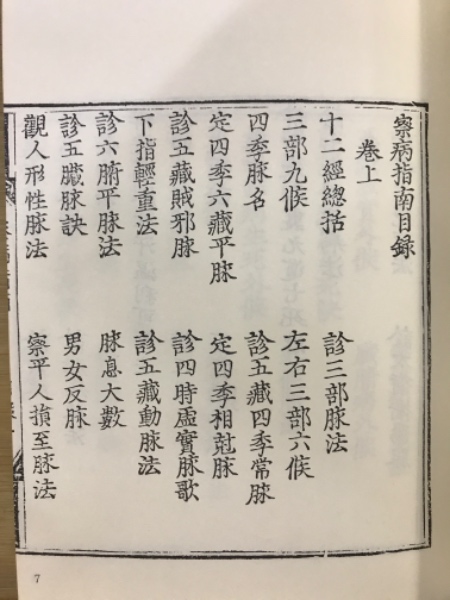 察病指南目錄
卷上
十二經總括　診三部脉法
三部九候　左右三部六候
四季脉名　診五藏四季常脉
定四季六藏平脉　定四季相尅脉
診五藏賊邪脉　診四時虛實脉歌
下指輕重法　診五藏動脉法
診六腑平脉法　脉息大數
診五臟脉訣　男女反脉
觀人形性脉法　察平人損至脉法
7